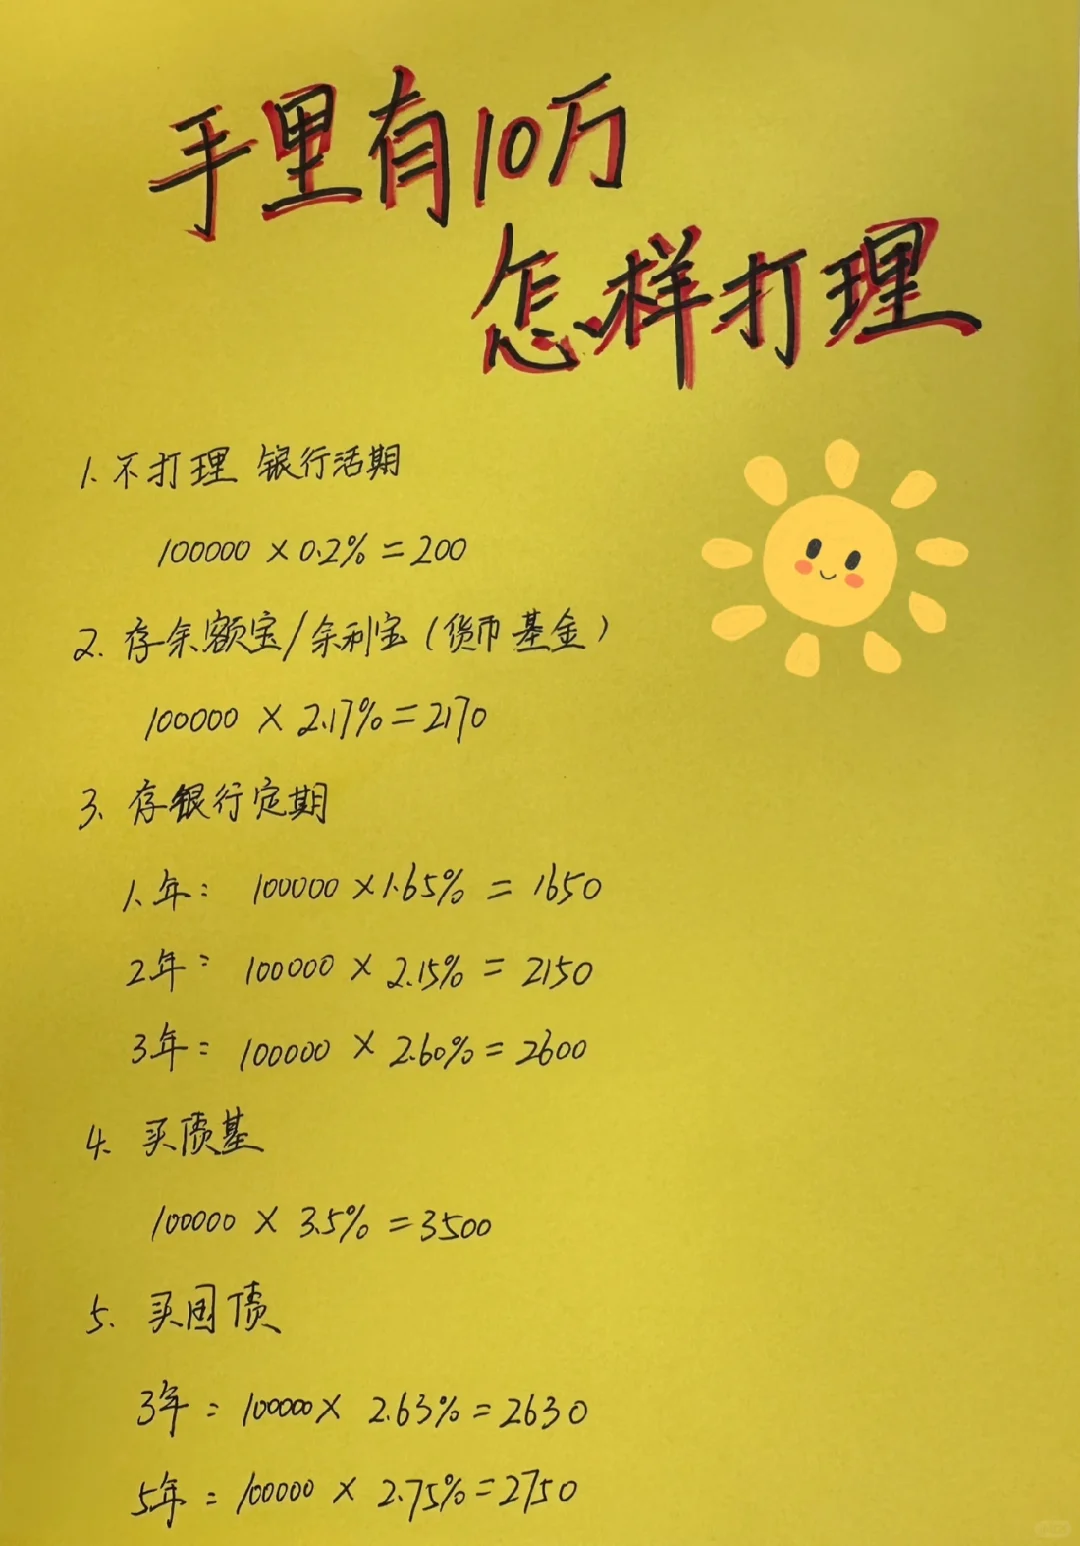 手里有10万
怎样打理
1. 不打理 银行活期
100000 × 0.2% = 200
2. 存余额宝/余利宝（货币基金）
100000 × 2.17% = 2170
3、存银行定期
1.年： 100000 × 1.65% = 1650
2年： 100000 × 2.15% = 2150
3年： 100000 × 2.60% = 2600
4、买债基
100000 × 3.5% = 3500
5、买国债
3年：100000 × 2.63% = 2630
5年：100000 × 2.75% = 2750